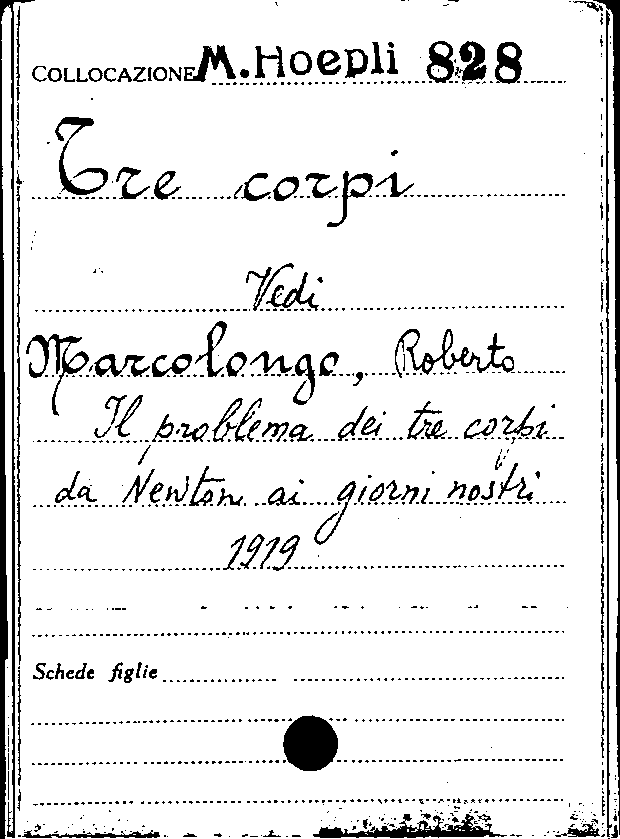 COLLOCAZIONE M. Hoepli 828
Tre corpi
Vedi
Marcolongo, Roberto
Il problema dei tre corpi
da Newton ai giorni nostri
1919
Schede figlie